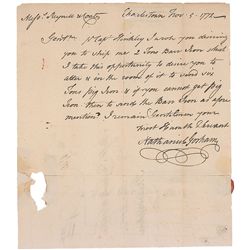 Mess.rs Reynell & Coates Charlestown Nov.r 5 1772
Gentn.
P Capt Hinkley I wrote you desiring
you to ship me 2 Tons Barr Iron which
I take this opportunity to desire you to
alter & in the room of it to send six
Tons Pig Iron & if you cannot get Pig
Iron then to send the Barr Iron as afore
mention'd I remain Gentlemen your
most Humble Servant
Nathaniel Gorham